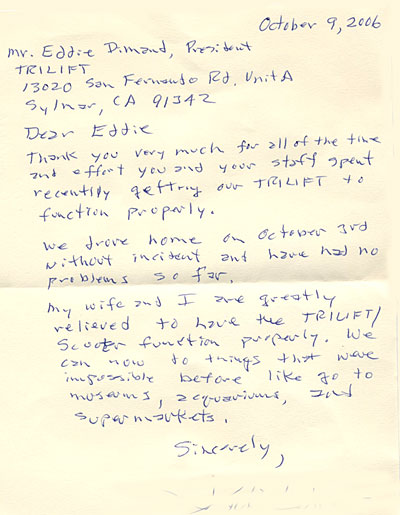 October 9, 2006
Mr. Eddie Dimand, President
TRILIFT
13020 San Fernando Rd. Unit A
Sylmar, CA 91342
Dear Eddie
Thank you very much for all of the time
and effort you and your staff spent
recently getting our TRILIFT to
function properly.
We drove home on October 3rd
without incident and have had no
problems so far.
My wife and I are greatly
relieved to have the TRILIFT/
Scooter function properly. We
can now to things that were
impossible before like go to
museums, acquariums, and
supermarkets.
Sincerely,